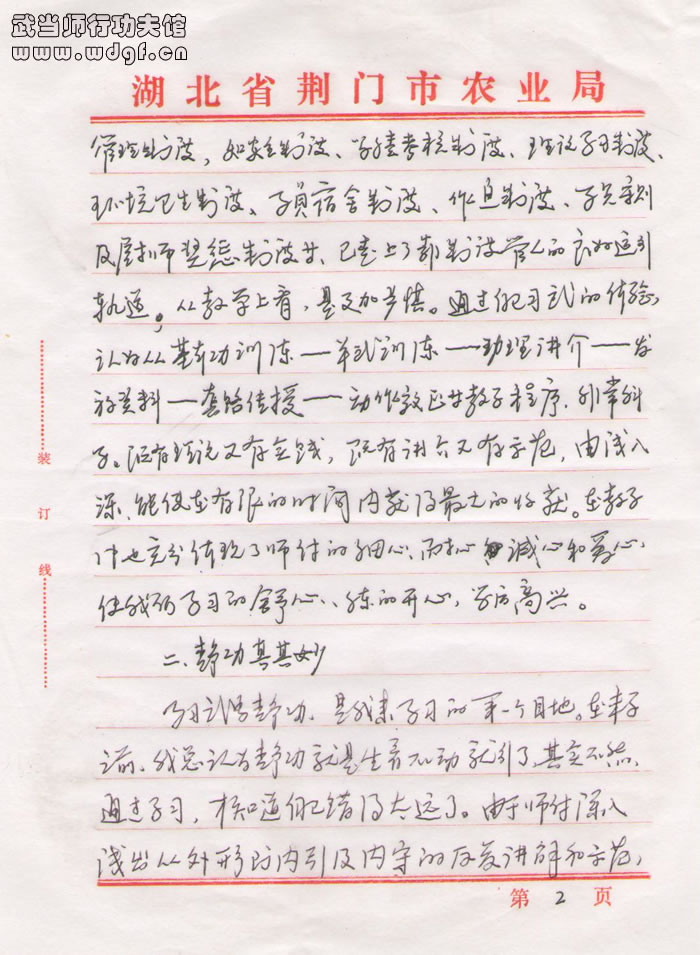 武当师行功夫馆
www.wdgf.cn
湖北省荆门市农业局
管理制度，如安全制度、学绩考核制度、理论学习制度、
环境卫生制度、学员宿舍制度、作息制度、学员守则
及厨师奖惩制度等、已走上了靠制度管人的良好运行
轨道。从教学上看，是更加严慎。通过自己习武的体验，
认为从基本功训练—单式训练—助理讲介—发
放资料—套路传授—动作校正等教学程序，非常科
学。既有理论又有实践，既有讲台又有示范，由浅入
深，能使在有限的时间内获得最大的收获。在教学
中也充分体现了师付的细心、耐心、诚心和爱心，
使我们学习的舒心、练的开心，学后高兴。
二、静功真其妙
学习武当静功，是我来学习的第一个目地。在来学
之前，我总认为静功就是坐着不动就行了，其实不然，
通过学习，才知道自己错得太远了。由于师付深入
浅出从外形到内引及内守的反复讲解和示范，
第 2 页
装
订
线